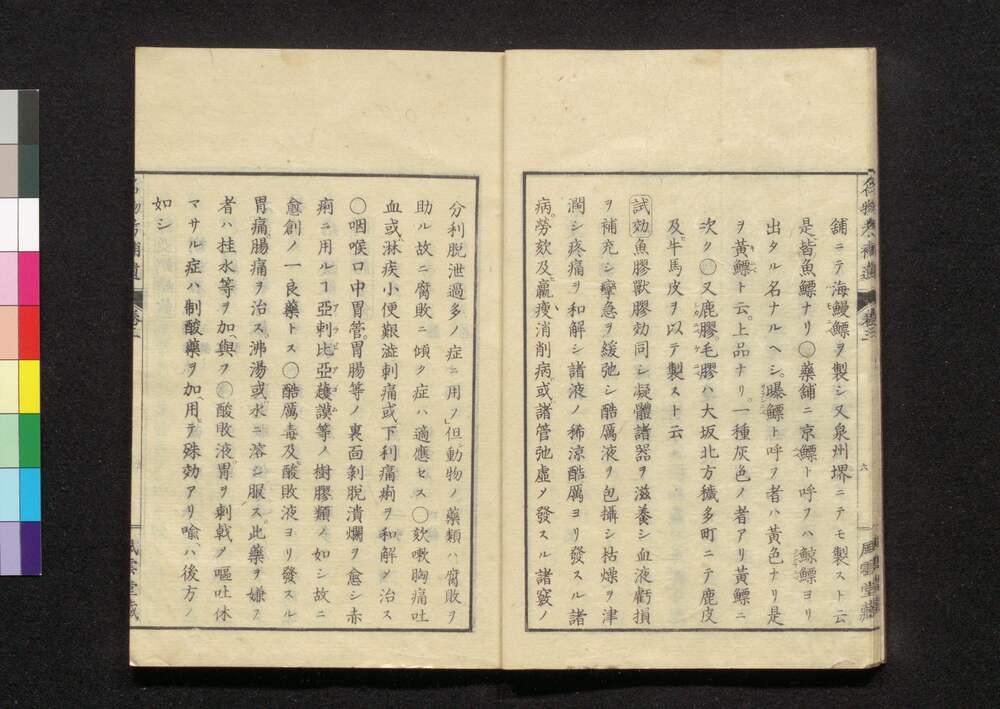 舖ニテ海鰻鰾ヲ製シ又泉州堺ニテモ製スト云
是皆魚鰾ナリ○藥舖ニ京鰾ト呼フハ鯨鰾ヨリ
出タル名ナルヘシ。曝鰾ト呼ヲ者ハ黄色ナリ是
ヲ黄鰾ト云。上品ナリ。一種灰色ノ者アリ黄鰾ニ
次ク○又鹿膠。毛膠ハ大坂北方穢多町ニテ鹿皮
及牛馬皮ヲ以テ製スト云
試効魚膠獸膠効同シ凝體諸器ヲ滋養シ血液虧損
ヲ補充シ攣急ヲ緩弛シ酷厲液ヲ包攝シ枯燥ヲ津
潤シ疼痛ヲ和解シ諸液ノ稀涼酷厲ヨリ發スル諸
病。勞欬及羸痩消削病。或諸管弛虚〆發スル諸竅ノ
分利脱泄過多ノ症ニ用ヲ但動物ノ藥類ハ腐敗ヲ
助ル故ニ腐敗ニ傾ク症ハ適應セス○欬嗽胸痛吐
血或淋疾小便艱澁刺痛或下利痛痢ヲ和解〆治ス
○咽喉口中胃管。胃腸等ノ裏面剝脱潰爛ヲ愈シ赤
痢ニ用ルヿ亞剌比亞護謨等ノ樹膠類ノ如シ故ニ
愈創ノ一良藥トス○酷厲毒及酸敗液ヨリ發スル
胃痛腸痛ヲ治ス。沸湯或水ニ溶シ服ス。此藥ヲ嫌フ
者ハ挂水等ヲ加與フ○酸敗液胃ヲ刺戟〆嘔吐休
マサル症ハ制酸藥ヲ加用テ殊効アリ喩ハ後方ノ
如シ